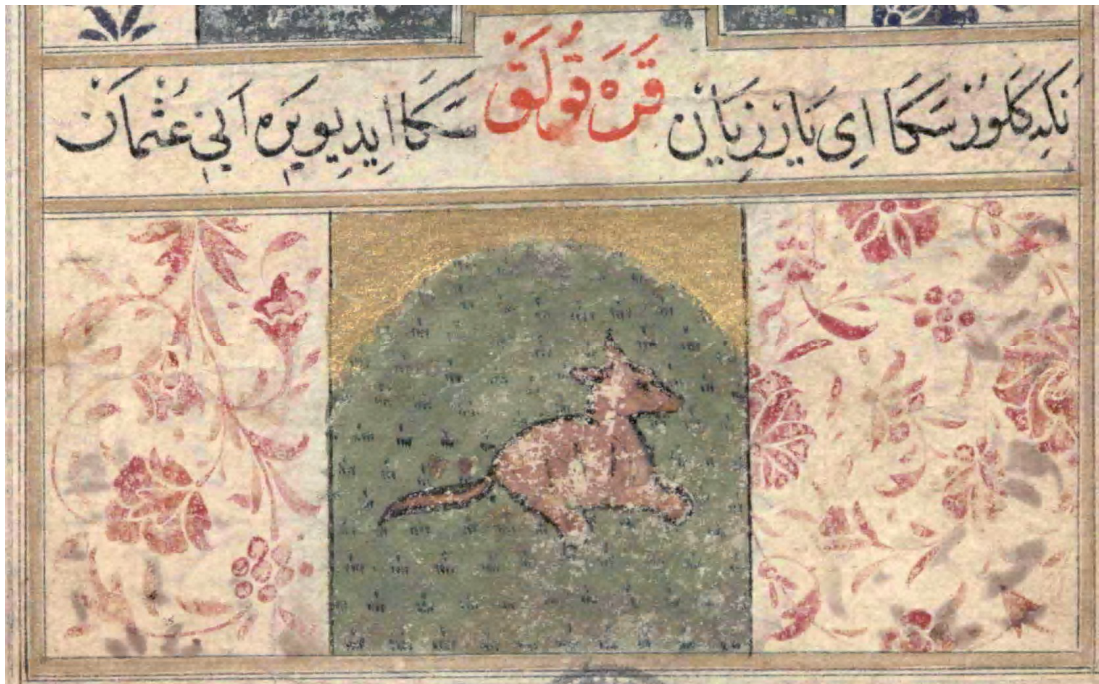 نكد كلورْ سَكَا اىِ يَارْ زِيَانْ قَرَه قُولَقْ سَكَا ايِديِويِرَه اَبنِ عُثْمَانْ